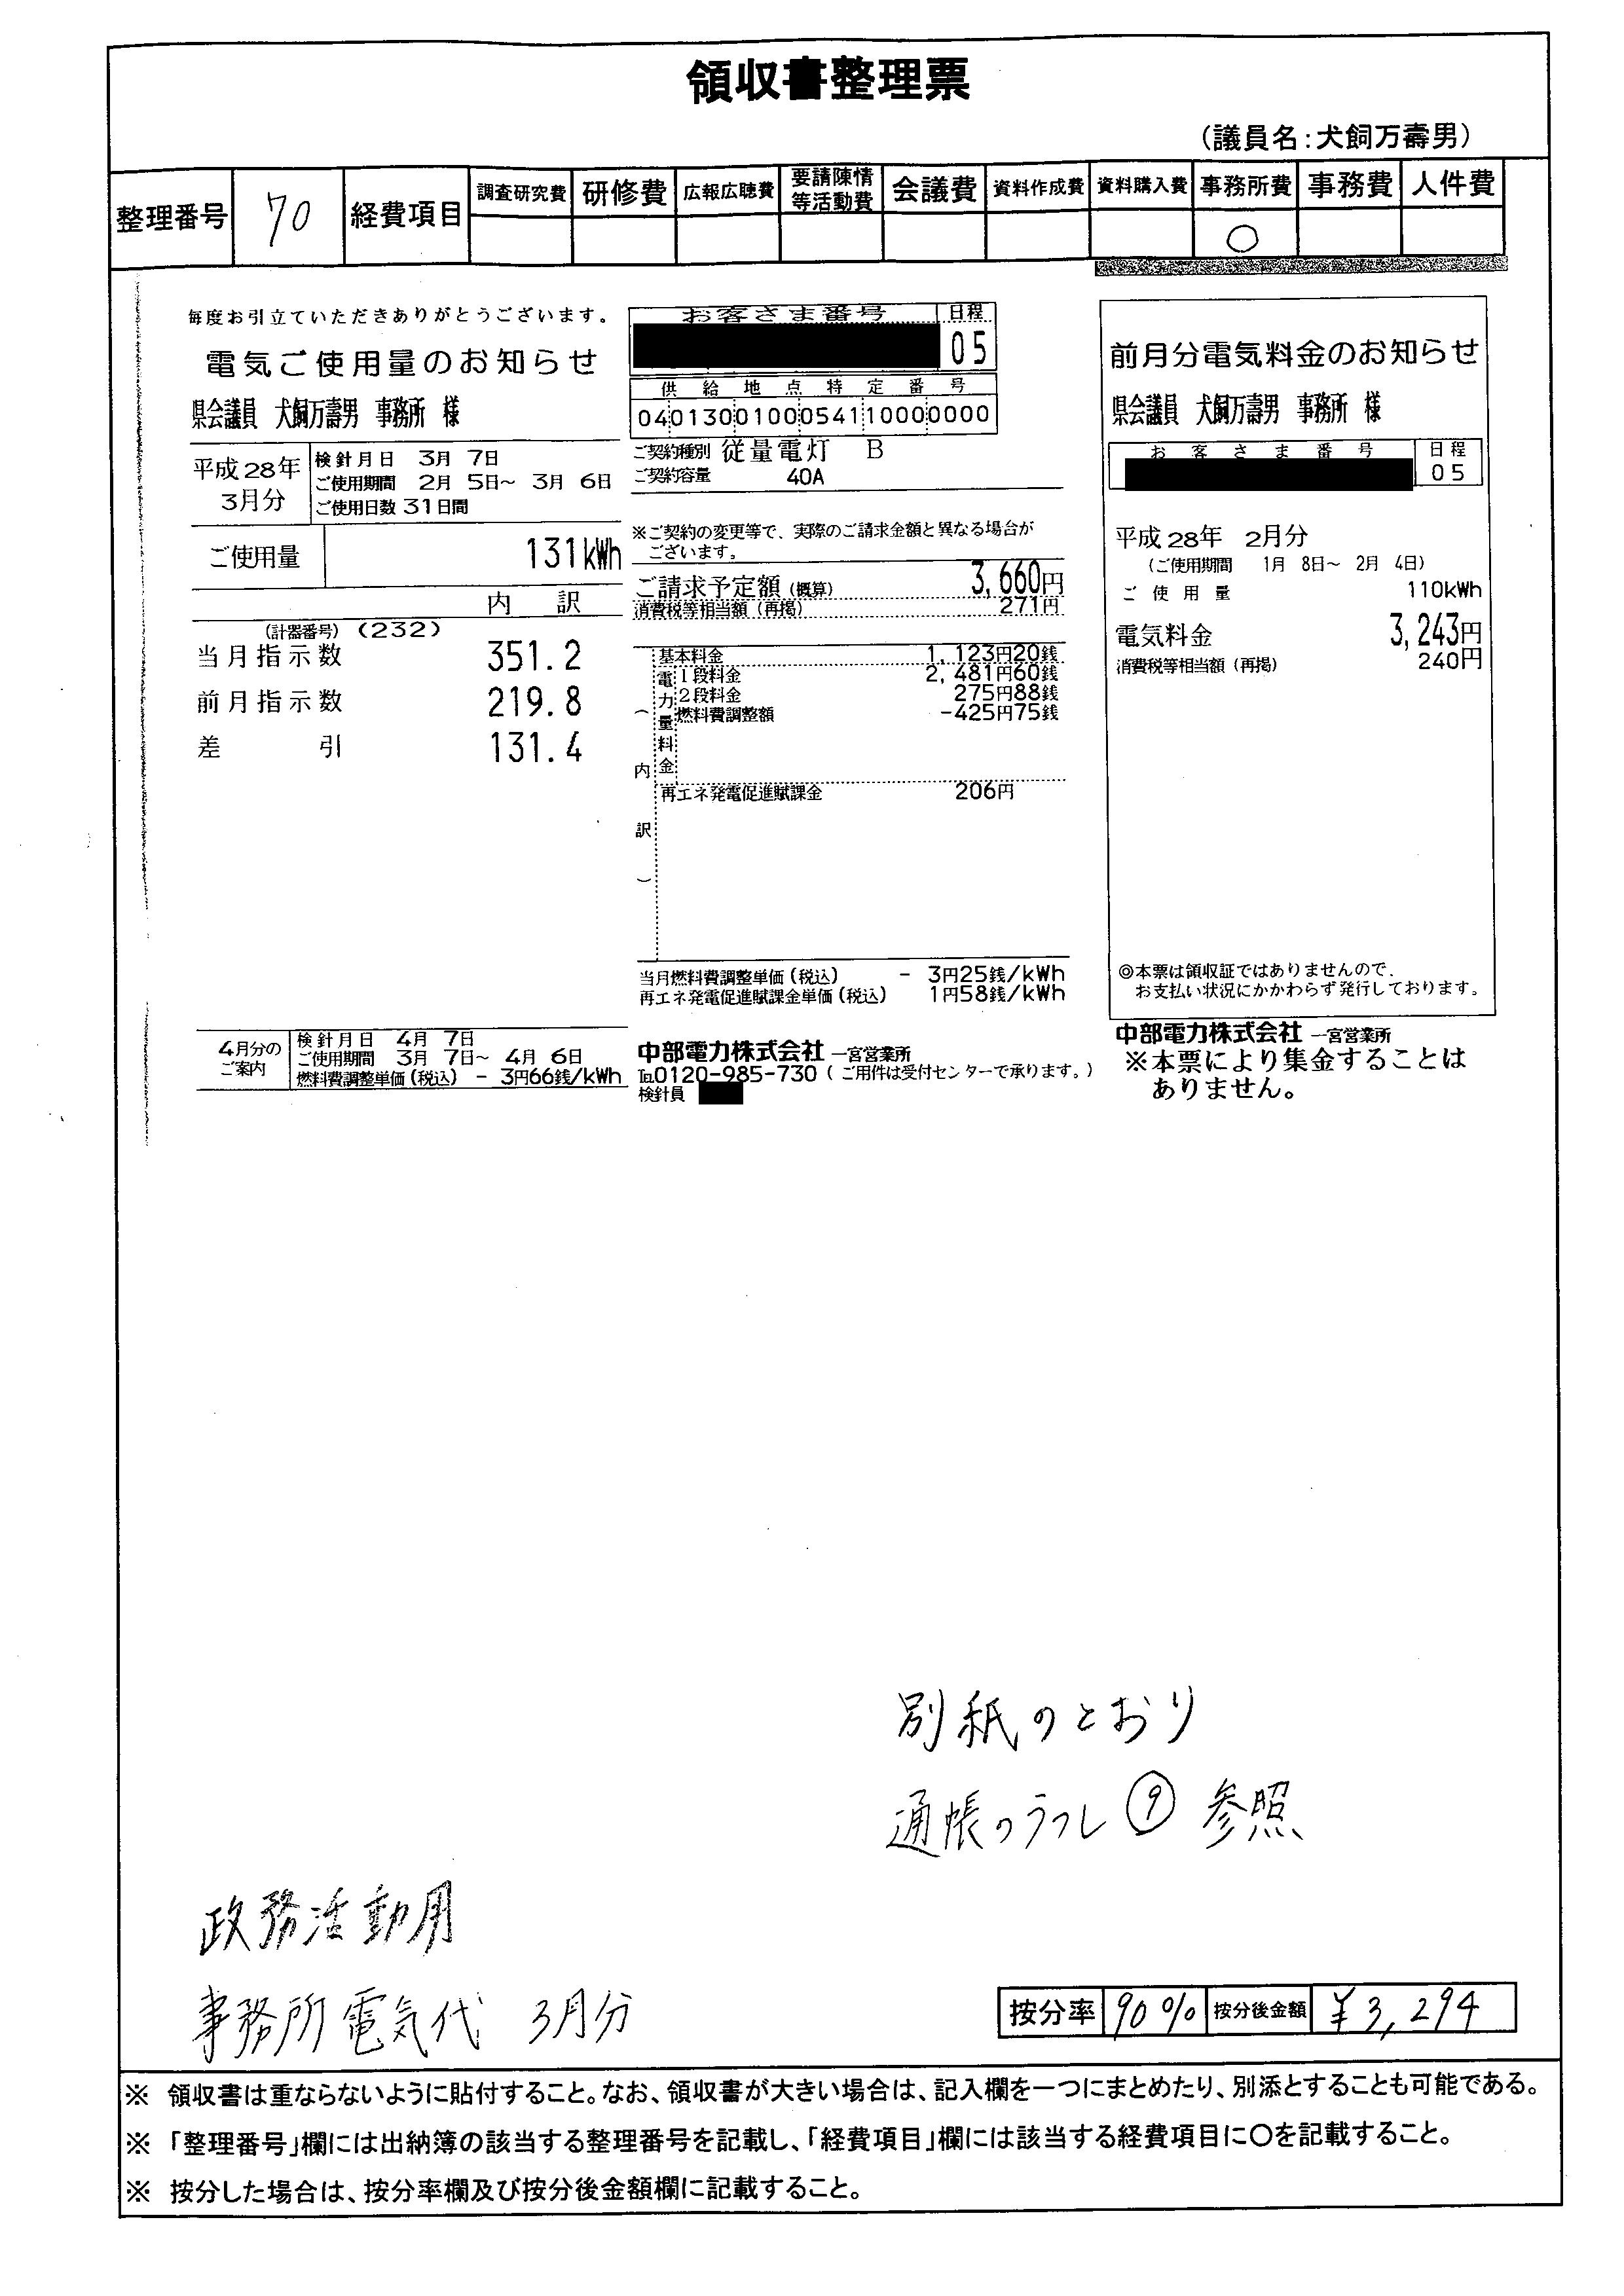 領収書整理票
(議員名:犬飼万壽男)
整理番号 70 経費項目 調査研究費 研修費 広報広聴費 要請陳情等活動費 会議費 資料作成費 資料購入費 事務所費 事務費 人件費
○
毎度お引立ていただきありがとうございます。
電気ご使用量のお知らせ
県会議員 犬飼万壽男 事務所 様
平成28年
3月分
検針月日 3月 7日
ご使用期間 2月 5日~ 3月 6日
ご使用日数 31日間
ご使用量 131kWh
内 訳
(計器番号) (232)
当月指示数 351.2
前月指示数 219.8
差 引 131.4
4月分の
ご案内
検針月日 4月 7日
ご使用期間 3月 7日~ 4月 6日
燃料費調整単価(税込) - 3円66銭/kWh
お客さま番号 日程
05
供給地点特定番号
0401300100054110000000
ご契約種別 従量電灯 B
ご契約容量 40A
※ご契約の変更等で、実際のご請求金額と異なる場合が
ございます。
ご請求予定額(概算) 3,660円
消費税等相当額(再掲) 271円
(内訳)
基本料金 1,123円20銭
電力量料金
1段料金 2,481円60銭
2段料金 275円88銭
燃料費調整額 -425円75銭
再エネ発電促進賦課金 206円
当月燃料費調整単価(税込) - 3円25銭/kWh
再エネ発電促進賦課金単価(税込) 1円58銭/kWh
中部電力株式会社 一宮営業所
℡0120-985-730(ご用件は受付センターで承ります。)
検針員
前月分電気料金のお知らせ
県会議員 犬飼万壽男 事務所 様
お客さま番号 日程
05
平成28年 2月分
(ご使用期間 1月 8日~ 2月 4日)
ご使用量 110kWh
電気料金 3,243円
消費税等相当額(再掲) 240円
◎本票は領収証ではありませんので、
お支払い状況にかかわらず発行しております。
中部電力株式会社 一宮営業所
※本票により集金することは
ありません。
別紙のとおり
通帳のうつし⑨参照
政務活動用
事務所電気代 3月分
按分率 90% 按分後金額 ¥3,294
※ 領収書は重ならないように貼付すること。なお、領収書が大きい場合は、記入欄を一つにまとめたり、別添とすることも可能である。
※ 「整理番号」欄には出納簿の該当する整理番号を記載し、「経費項目」欄には該当する経費項目に○を記載すること。
※ 按分した場合は、按分率欄及び按分後金額欄に記載すること。